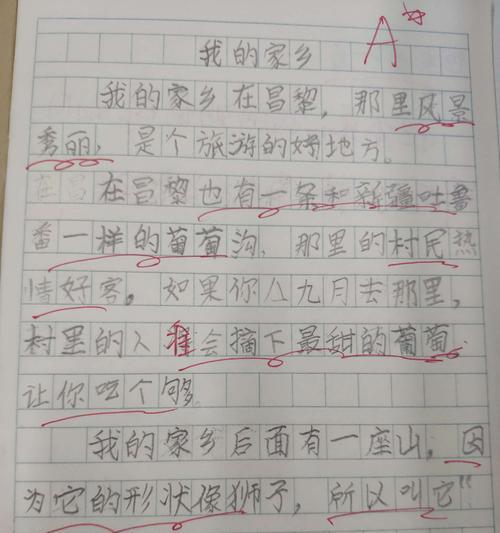 A
我的家乡
我的家乡在昌黎，那里风景
秀丽，是个旅游的好地方。
在昌在昌黎也有一条和新疆吐鲁
番一样的葡萄沟，那里的村民热
情好客。如果你八九月去那里，
村里的人准会摘下最甜的葡萄，
让你吃个够。
我的家乡后面有一座山，因
为它的形状像狮子，所以叫它“